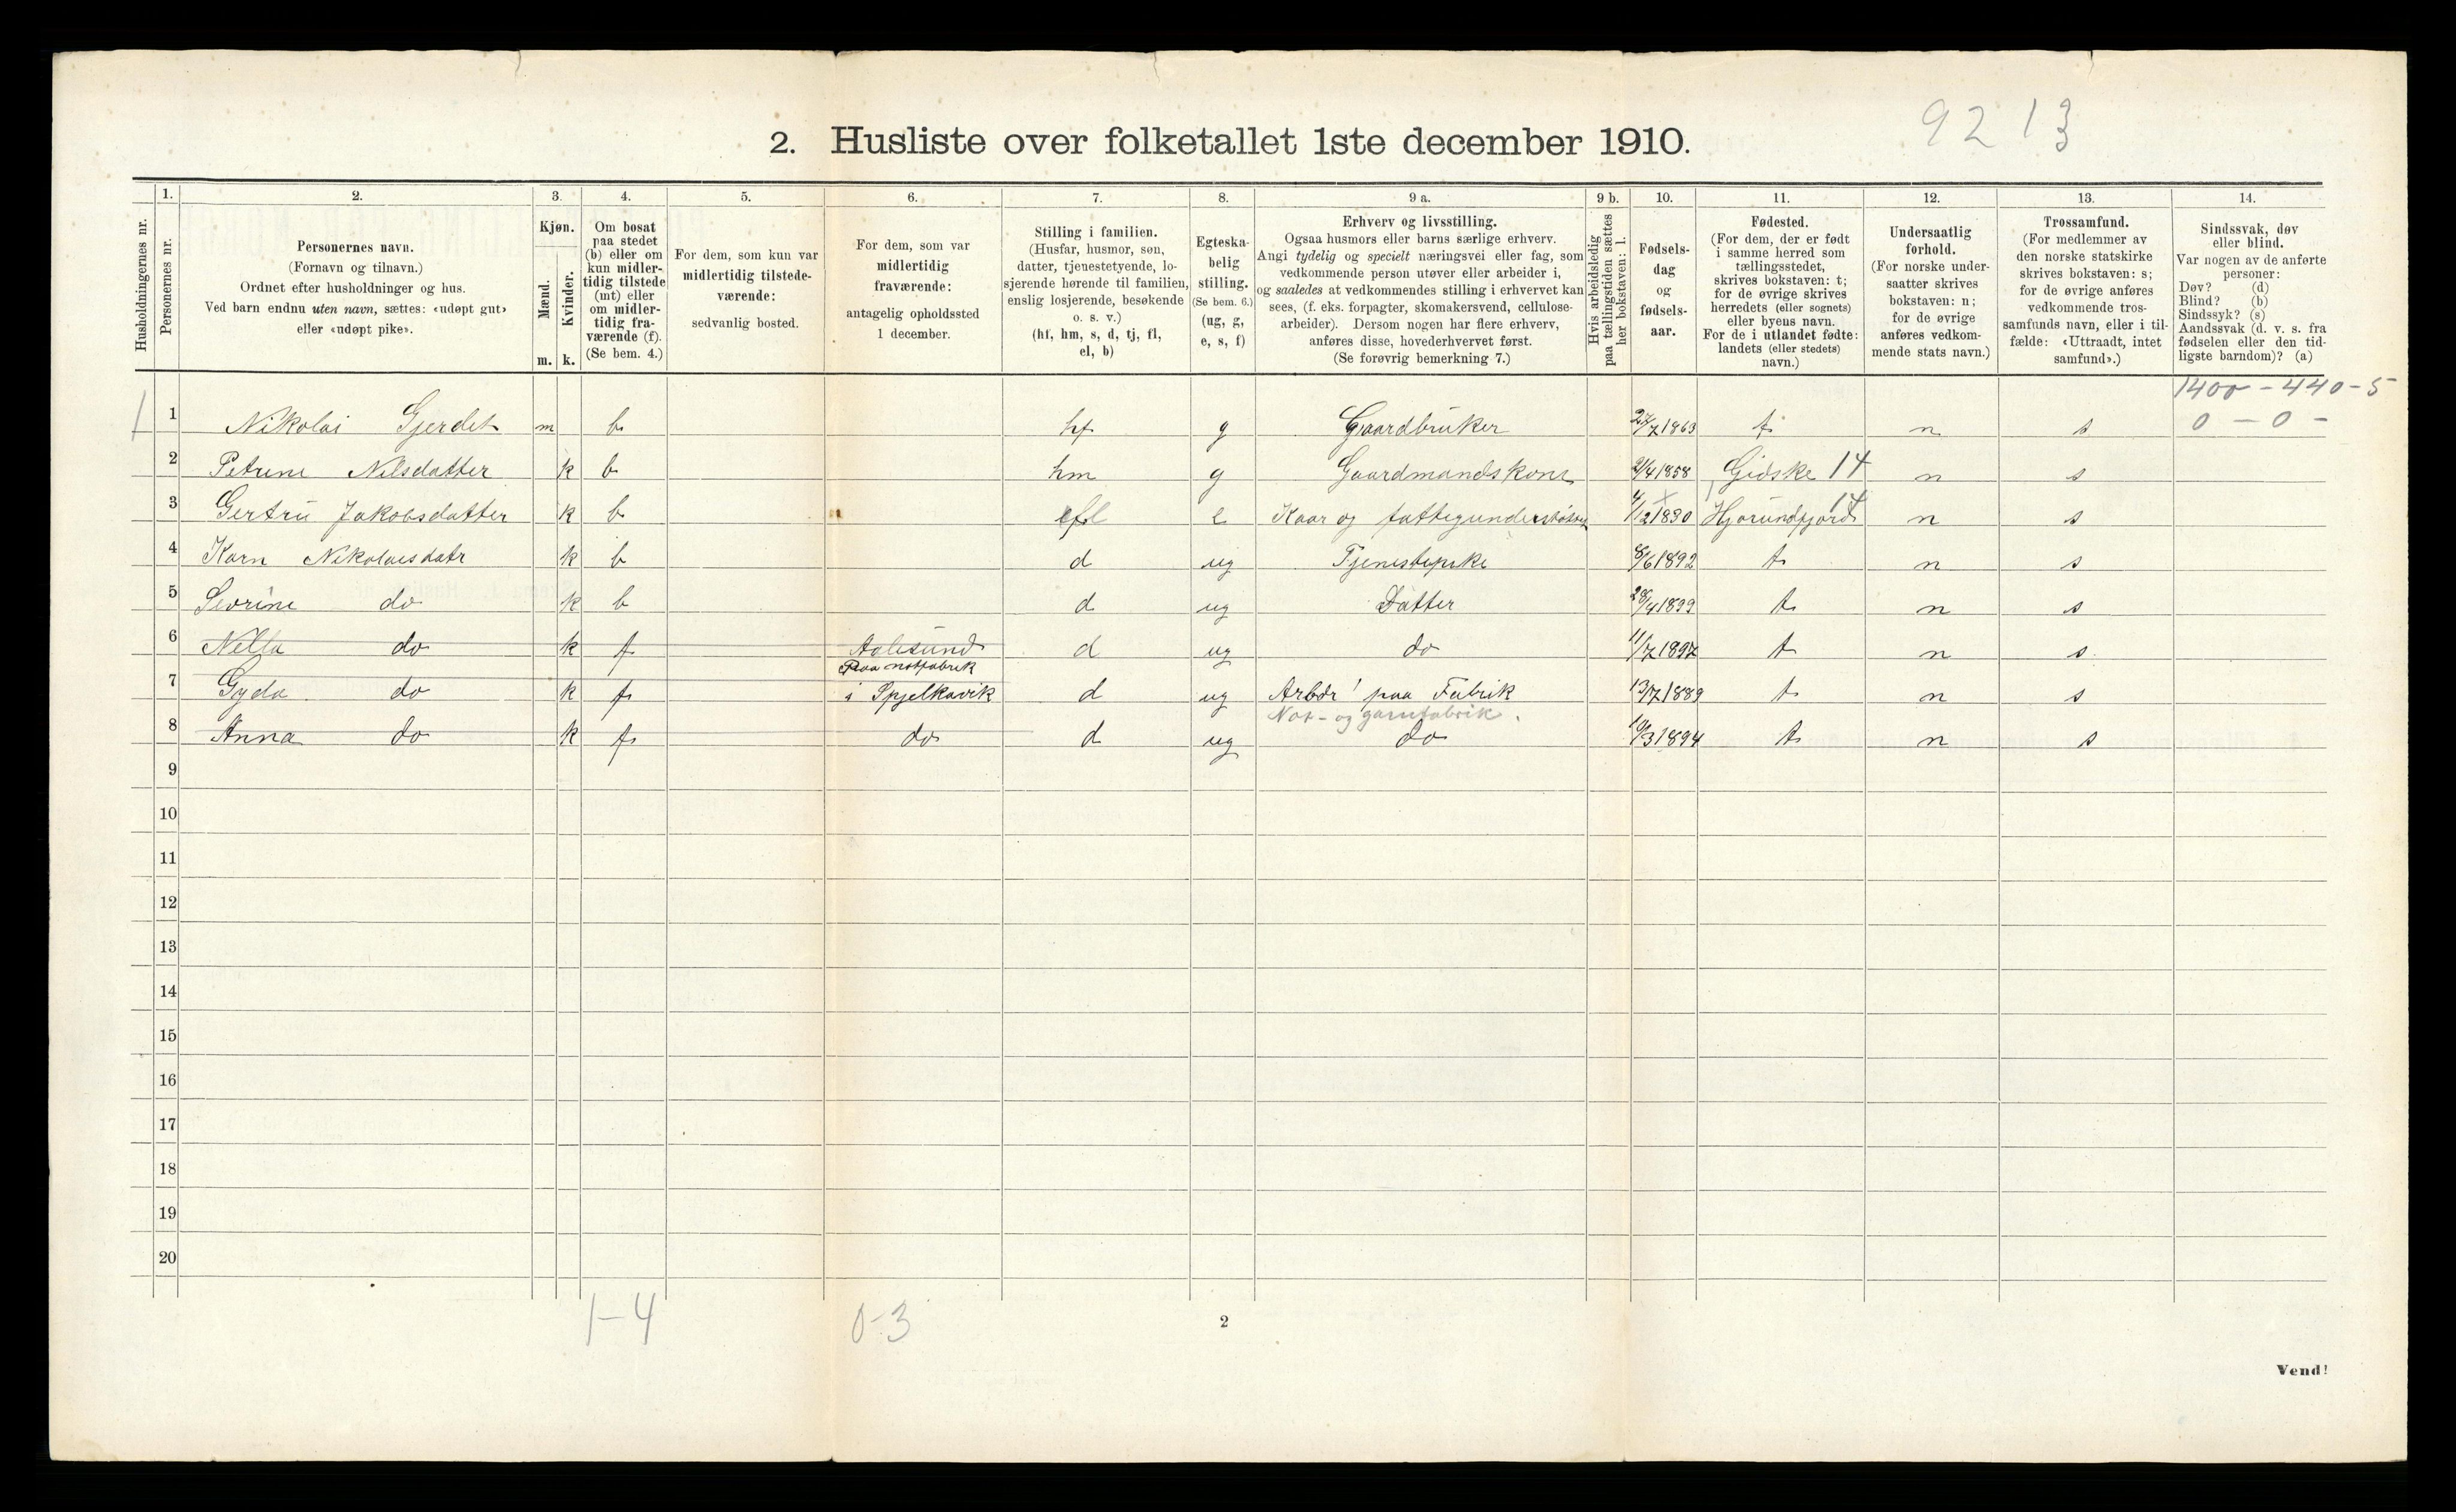 92 13
2. Husliste over folketallet 1ste december 1910.
Husholdningernes nr.
1. Personernes nr.
2. Personernes navn.
(Fornavn og tilnavn.)
Ordnet efter husholdninger og hus.
Ved barn endnu uten navn, sættes: «udøpt gut»
eller «udøpt pike».
3. Kjøn.
Mænd. Kvinder.
m. k.
4. Om bosat
paa stedet
(b) eller om
kun midler-
tidig tilstede
(mt) eller
om midler-
tidig fra-
værende (f).
(Se bem. 4.)
5. For dem, som kun var
midlertidig tilstede-
værende:
sedvanlig bosted.
6. For dem, som var
midlertidig
fraværende:
antagelig opholdssted
1 december.
7. Stilling i familien.
(Husfar, husmor, søn,
datter, tjenestetyende, lo-
sjerende hørende til familien,
enslig losjerende, besøkende
o. s. v.)
(hf, hm, s, d, tj, fl,
el, b)
8. Egteska-
belig
stilling.
(Se bem. 6.)
(ug, g,
e, s, f)
9 a. Erhverv og livsstilling.
Ogsaa husmors eller barns særlige erhverv.
Angi tydelig og specielt næringsvei eller fag, som
vedkommende person utøver eller arbeider i,
og saaledes at vedkommendes stilling i erhvervet kan
sees, (f. eks. forpagter, skomakersvend, cellulose-
arbeider). Dersom nogen har flere erhverv,
anføres disse, hovederhvervet først.
(Se forøvrig bemerkning 7.)
9 b. Hvis arbeidsledig
paa tællingstiden sættes
her bokstaven: l.
10. Fødsels-
dag
og
fødsels-
aar.
11. Fødested.
(For dem, der er født
i samme herred som
tællingsstedet,
skrives bokstaven: t;
for de øvrige skrives
herredets (eller sognets)
eller byens navn.
For de i utlandet fødte:
landets (eller stedets)
navn.)
12. Undersaatlig
forhold.
(For norske under-
saatter skrives
bokstaven: n;
for de øvrige
anføres vedkom-
mende stats navn.)
13. Trossamfund.
(For medlemmer av
den norske statskirke
skrives bokstaven: s;
for de øvrige anføres
vedkommende tros-
samfunds navn, eller i til-
fælde: «Uttraadt, intet
samfund».)
14. Sindssvak, døv
eller blind.
Var nogen av de anførte
personer:
Døv? (d)
Blind? (b)
Sindssyk? (s)
Aandssvak (d. v. s. fra
fødselen eller den tid-
ligste barndom)? (a)
1400 - 440 - 5
1 1 Nikolai Gjerdet m b hf g Gaardbruker 27/7 1863 t n s 0 - 0 -
2 Petrine Nilsdatter k b hm g Gaardmandskone 2/4 1858 Gidske 14 n s
3 Gertru Jakobsdatter k b fl e Kaar og fattigunderstøttet 4/12 1830 Hjørundfjord 14 n s
4 Karn Nikolaisdatr k b d ug Tjenestepike 8/6 1892 t n s
5 Sevrine do k b d ug Datter 28/4 1899 t n s
6 Nella do k f Aalesund d ug do 11/7 1897 t n s
Paa notfabrik
7 Gyda do k f i Spjelkavik d ug Arbdr paa Fabrik 13/7 1889 t n s
Not- og garnfabrik.
8 Anna do k f do d ug do 10/3 1894 t n s
9
10
11
12
13
14
15
16
17
18
19
20
1-4 0-3
2
Vend!